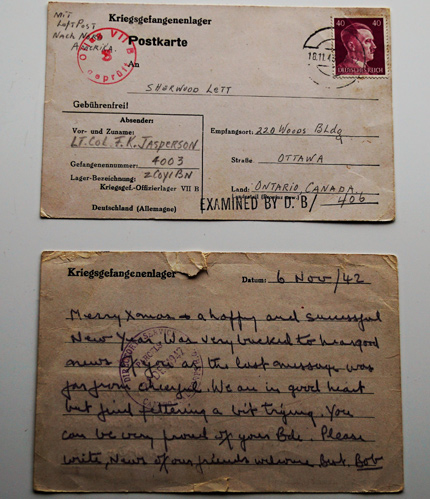 Mit
Luft Post
Nach Nord
Amerika.
Kriegsgefangenenlager
Postkarte
An
Oflag VII B
geprüft
40 40
DEUTSCHES REICH
Sherwood Lett
Gebührenfrei!
Absender:
Vor- und Zuname:
Lt. Col. F.K. Jasperson
Gefangenennummer: 4003
Lager-Bezeichnung: 2 Coy 1 BN
Kriegsgef.-Offizierlager VII B
Deutschland (Allemagne)
Empfangsort: 220 Woods Bldg
Straße: Ottawa
Land: Ontario Canada
EXAMINED BY D. B/ 406
Kriegsgefangenenlager
Datum: 6 Nov/42
Merry Xmas & a happy and successful
New Year. Was very bucked to hear good
news of you as the last message was
far from cheerful. We are in good heart
but find fettering a bit trying. You
can be very proud of your Bde. Please
write, News of our friends welcome, Bob